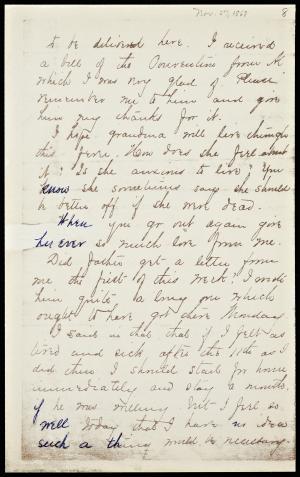 Nov. 27, 1867
8
to be delivered here. I received
a bill of the Convention from
which I was very glad of Please
remember me to him and give
him my thanks for it.
I hope grandma will live through
this fever. How does she feel about
it? Is she anxious to live? You
know she sometimes says she should
be better off if she were dead.
When you go out again give
her ever so much love from me.
Did father get a letter from
me the first of this week? I wrote
him quite a long one which
ought to have got there Monday.
I said in that that if I felt as
tired and sick after the 11th as I
did then I should start for home
immediately and stay a month,
if he was willing but I feel so
well today that I have no idea
such a thing would be necessary.